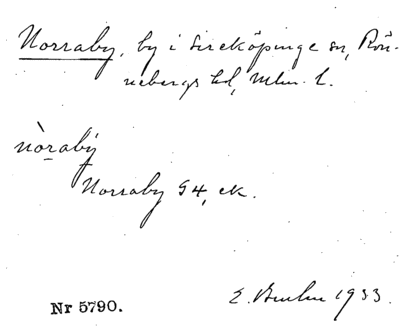 Norraby, by i Sireköpinge sn, Rön-
nebergs hd, Mlm. l.
nòrabý
Norraby S4, ek.
Nr 5790.
1933.